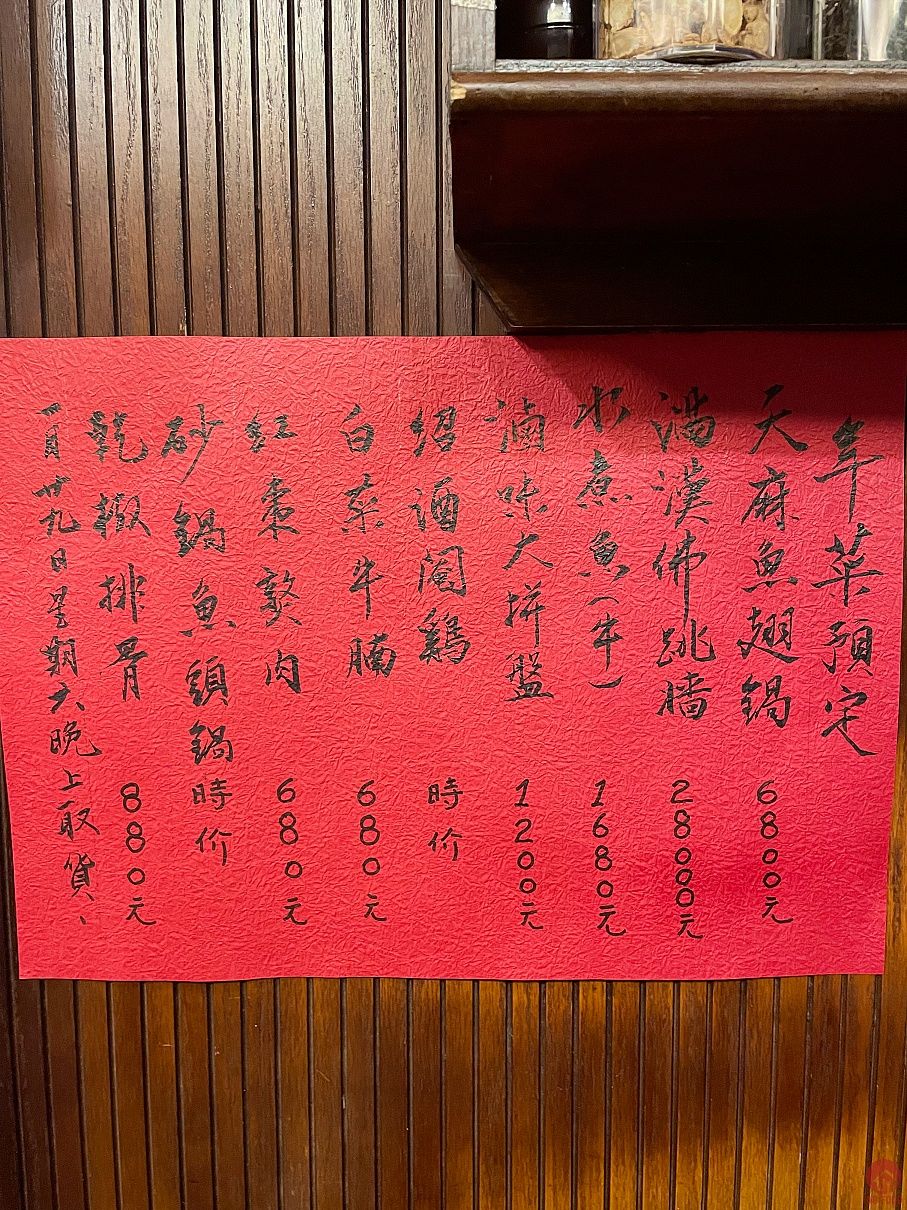 年菜預定
天麻魚翅鍋 6800元
滿漢佛跳牆 28000元
水煮魚(牛) 1680元
滷味大拼盤 1200元
紹酒閹鷄 時价
白菜牛腩 680元
紅棗燉肉 680元
砂鍋魚頭鍋 時价
乾椒排骨 880元
一月廿九日星期六晚上取貨、